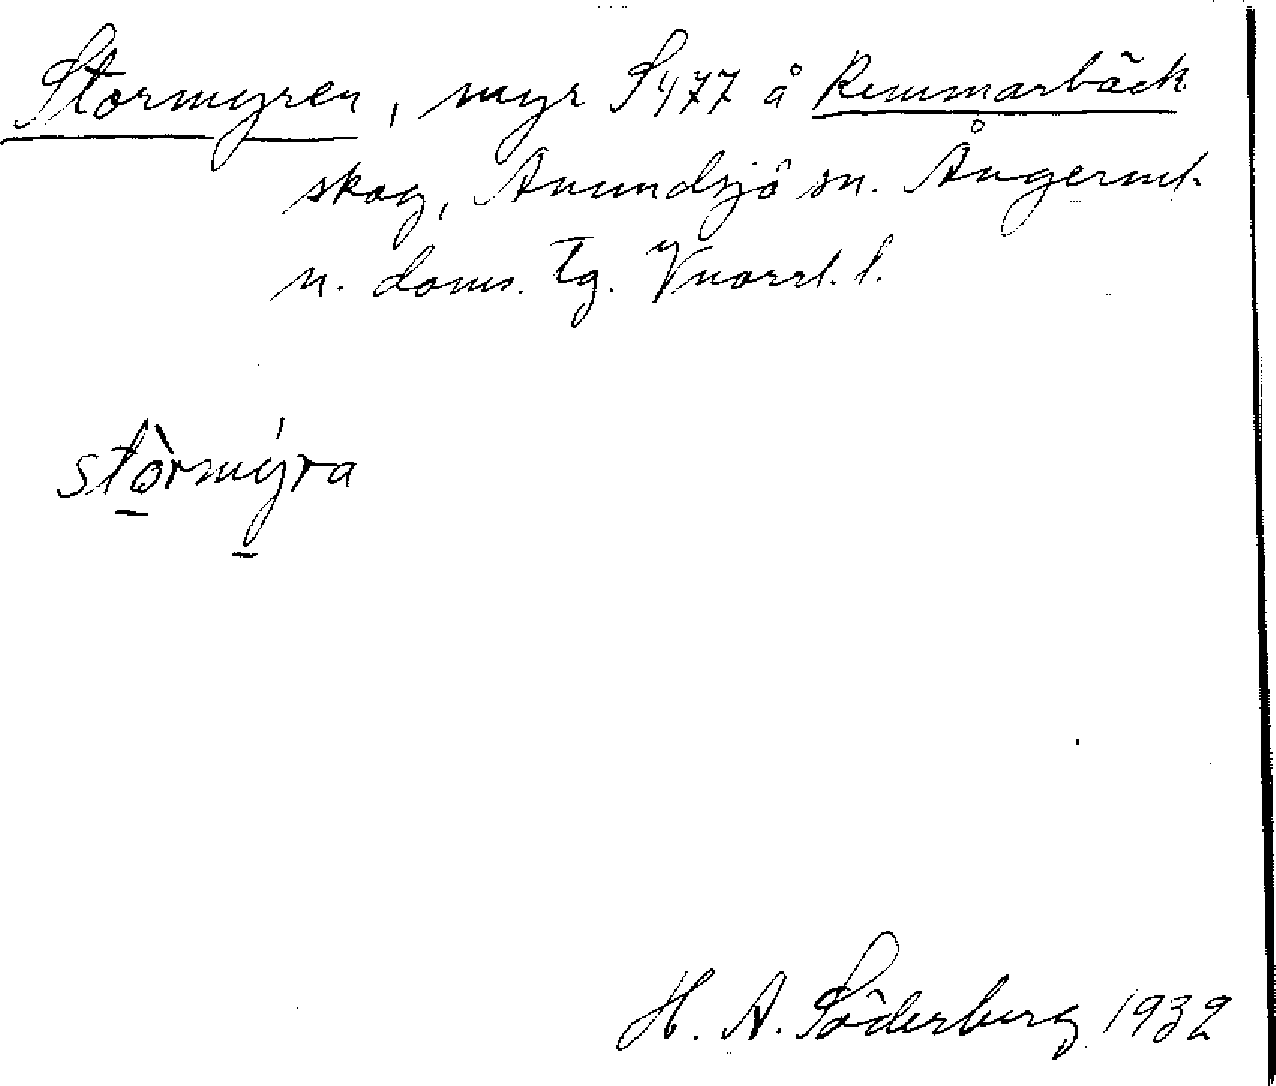 Stormyren, myr S477 å Remmarbäck
skog, Anundsjö sn. Ångerml.
n. doms. tg. Vnorrl. l.
stòrmýra
H. A. Söderberg 1932